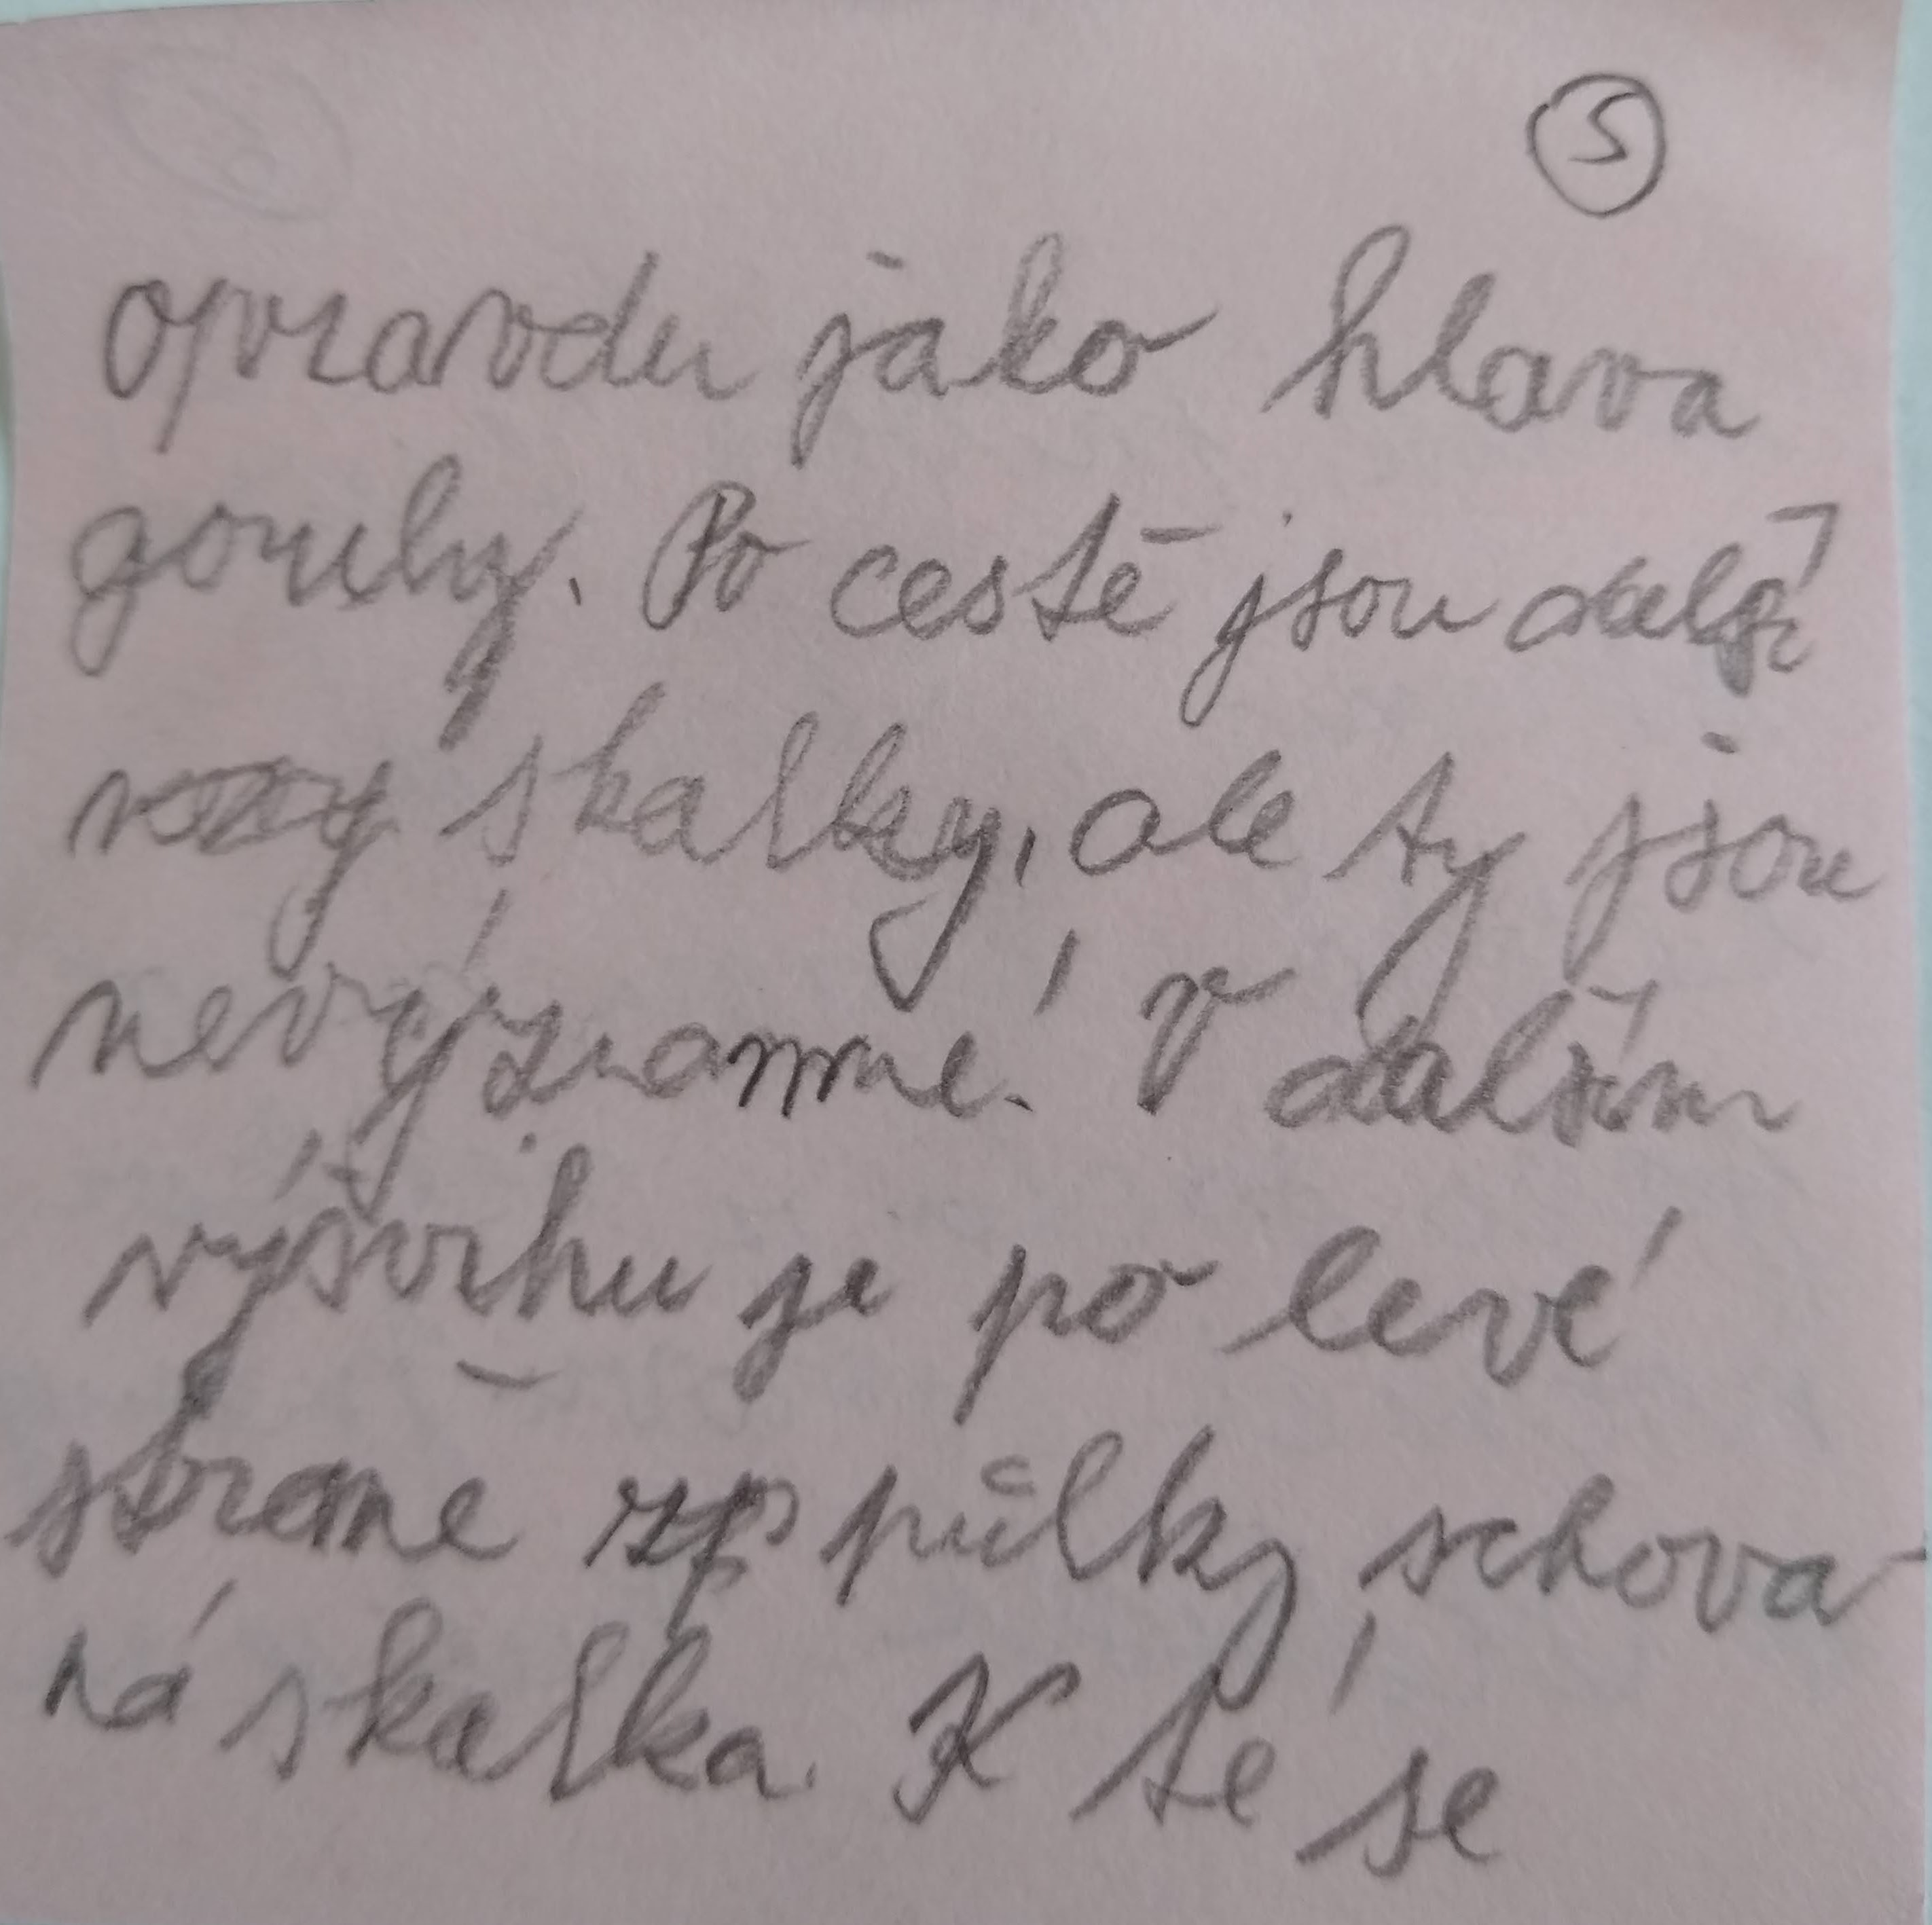 5
opravdu jako hlava
gorily. Po cestě jsou další
skalky, ale ty jsou
nevýznamné. V dalším
výšvihu je po levé
straně půlky schova-
ná skalka. K té se